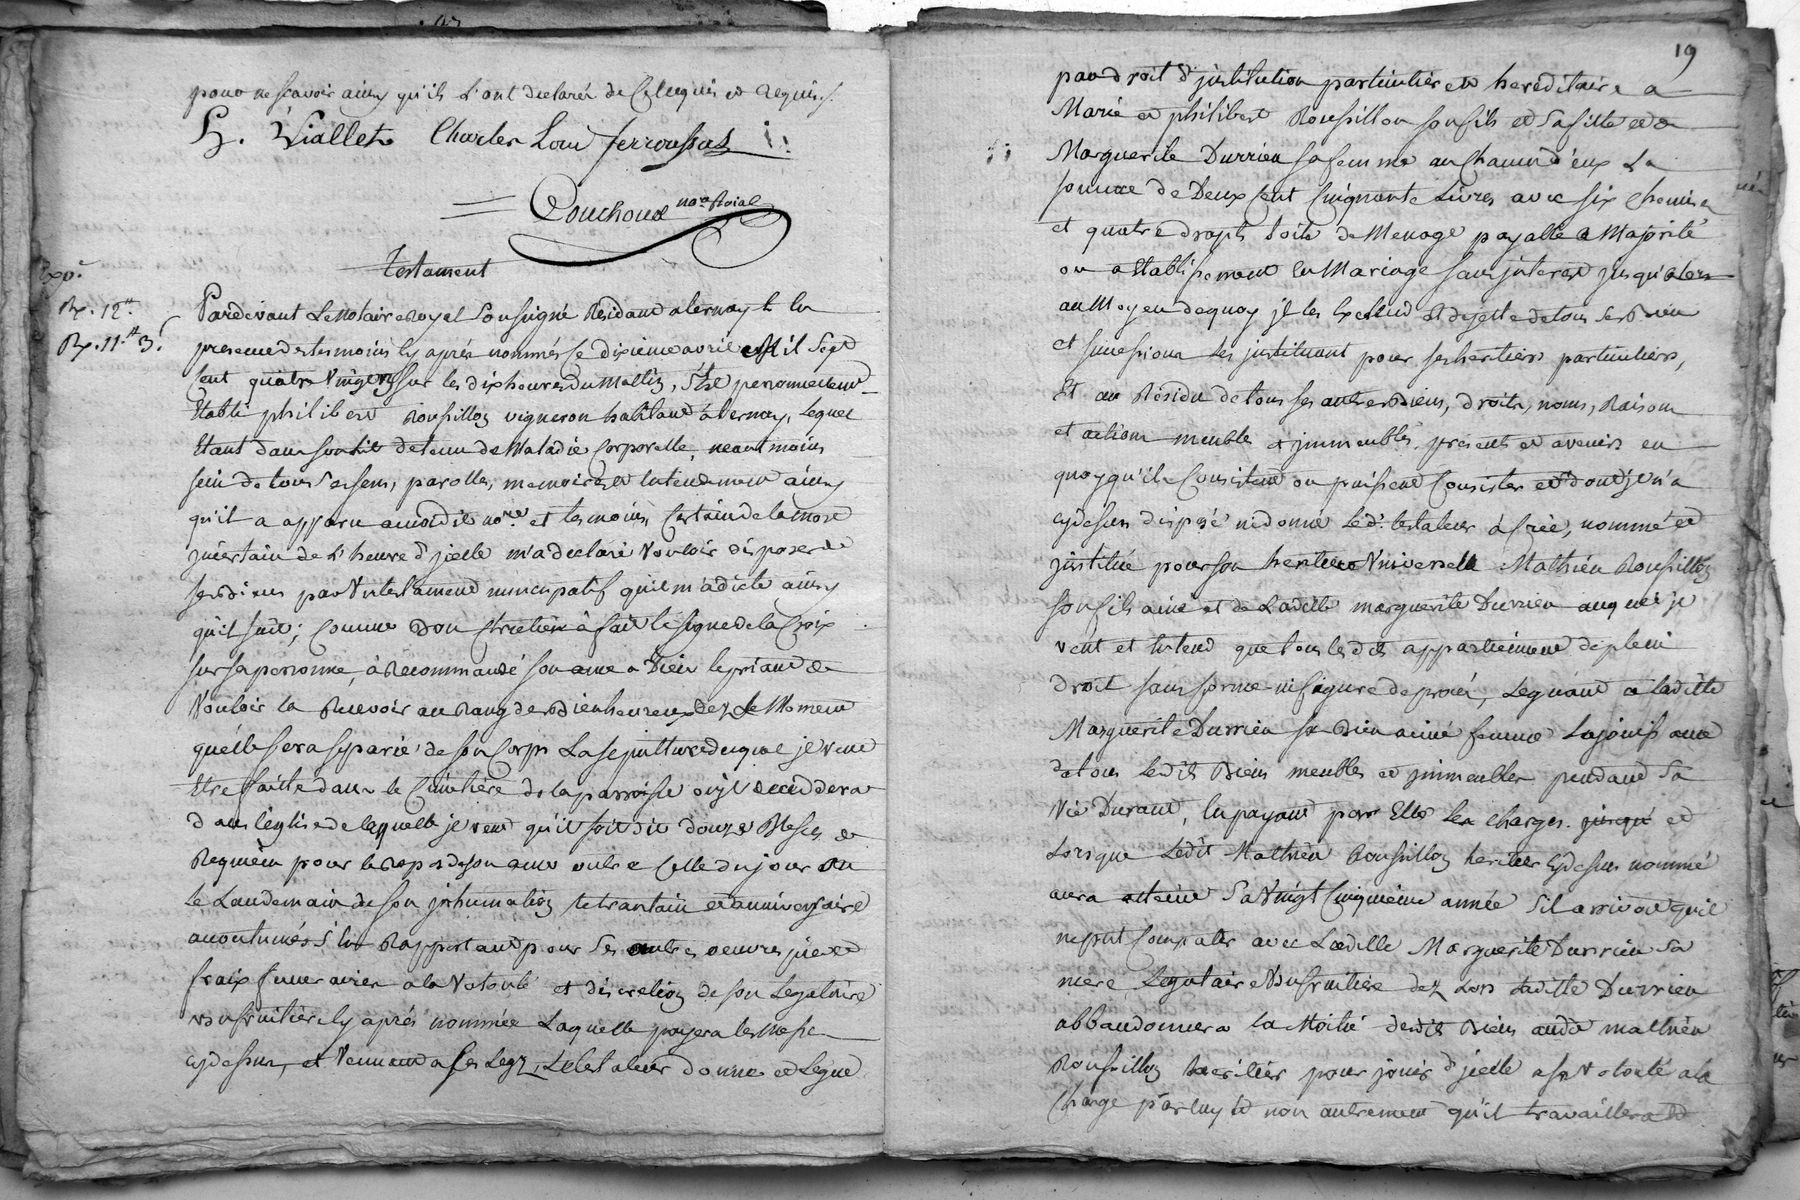 pour ne scavoir ainsy qu'ils l'ont declaré de ce enquis et requis ./.
h. Viallet Charles Loui ferroussat
Couchoud no.re Roial
Testament
Exp.é
Rx. 12.tt
Rx. 11.tt 3.s
Pardevant Le Notaire Royal Soussigné Residant a Vernay Et en
presence des temoins Cy après nommés Ce dixieme avril Mil Sept
Cent quatre Vingt sur les dix heures du Mattin, s'Est personnellement
Etabli philibert Roussillon vigneron habitant à Vernay, Lequel
Etant dans son lit detenu de Maladie Corporelle, neantmoins
sein de tous ses sens, parolles, memoires et Entendement ainsy
qu'il a apparu a moidit no.re et temoins, Certain de la mort
jncertain de L'heure d'jcelle m'a declaré Vouloir disposer de
ses biens par Un testament nuncupatif qu'il m'a dicté ainsy
qu'il suit ; Comme Bon Chretien à fait le signe de la Croix
sur sa personne, à Recommandé son ame a Dieu le priant de
Vouloir la Recevoir au Rang des Bienheureux dez Le Moment
quelle sera separée de son Corps La sepulture duquel je veut
Etre faitte dans le Cimetière de la parroisse où jl deceddera
dans l'églize de laquelle je veut qu'il soit dit douze Messes de
Requiem pour le Repos de son ame outre Celle du jour ou
le Landemain de son jnhumation le trantain et anniversaire
accoutumés S'En Rapportant pour Ses autres oeuvres pies et
fraix funeraires a la Volonté et discretion de son Legataire
Usufruitière Cy après nommée Laquelle payera les Messes
cydessus, et Venant a ses Legz, Le testateur donne et Legue
19
par droit d'jnstitution particulier et hereditaire a
Marie et philibert Roussillon son fils et sa fille et de
Marguerite Durrieu sa femme a un Chacun d'eux La
somme de Deux Cent Cinquante Livres avec six Chemises
et quatre drapts toile de Menage payable a Majorité
ou Etablissement En Mariage sans jnterest jusqu'alors
au Moyen de quoy jl les Exclud Et dejette de tous ses Biens
et successions Les jnstituant pour ses heritiers particuliers,
Et au Residu de tous ses autres Biens, droits, noms, Raisons
et actions meubles et jmmeubles presents et avenirs en
quoy qu'ils Consistent ou puissent Consister et dont jl n'a
cydessus disposé ni donné Led.t testateur à Créé, nommé et
jnstitué pour son heritier Universelle Mathieu Roussillon
son fils ainé et de Laditte Marguerite Durrieu auquel je
veut et Entend que tous lesdits appartiennent de plein
droit sans forme ni figure de procès, Leguant a laditte
Marguerite Durrieu sa Bien aimé femme La jouissance
de tous lesdits Biens meubles et jmmeubles pendant Sa
Vie Durant, En payant par Elle les charges. et
Lorsque Ledit Mathieu Roussillon heritier Cydessus nommé
aura atteint Sa Vingt Cinquieme année S'il arrivoit qu'il
ne put Compatir avec Laditte Marguerite Durrieu Sa
mere Legataire Usufruitière dez Lors Laditte Durrieu
abbandonnera la Moitié desdits Biens audit mathieu
Roussillon heritier pour jouir d'jcelle a sa Volonté a la
Charge par luy Et non autrement qu'il travaillera Et